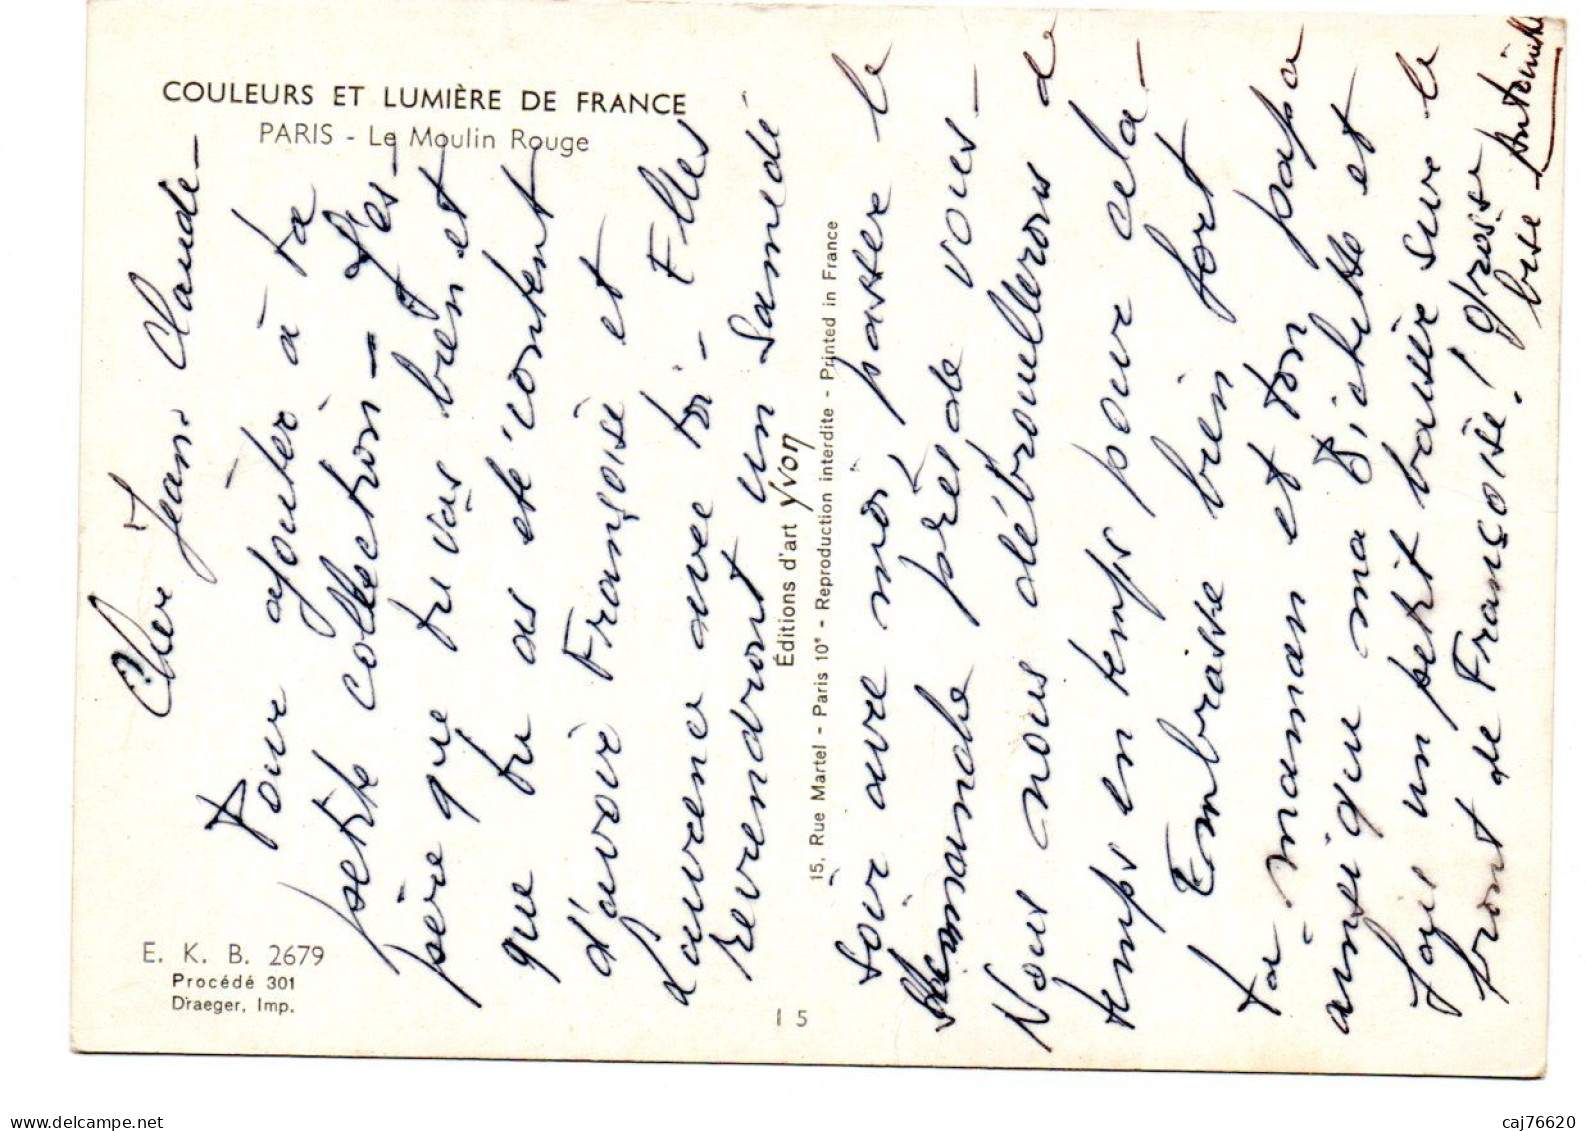 COULEURS ET LUMIÈRE DE FRANCE
PARIS - Le Moulin Rouge
Cher Jean-Claude-
Pour ajouter à ta
petite collection - J'es-
père que tu vas bien et
que tu as été content
d'avoir Françoise et
Laurence avec toi - Elles
reviendront un samedi
soir avec moi passer le
dimanche près de vous -
Nous nous débrouillerons de
temps en temps pour cela -
Embrasse bien fort
ta maman et ton papa
ainsi que ma et
fais un petit baiser sur le
front de Françoise! grosse
bise
Éditions d'art Yvon
15, Rue Martel - Paris 10e - Reproduction interdite - Printed in France
E. K. B. 2679
Procédé 301
Draeger, Imp.
I 5
www.delcampe.net
caj76620